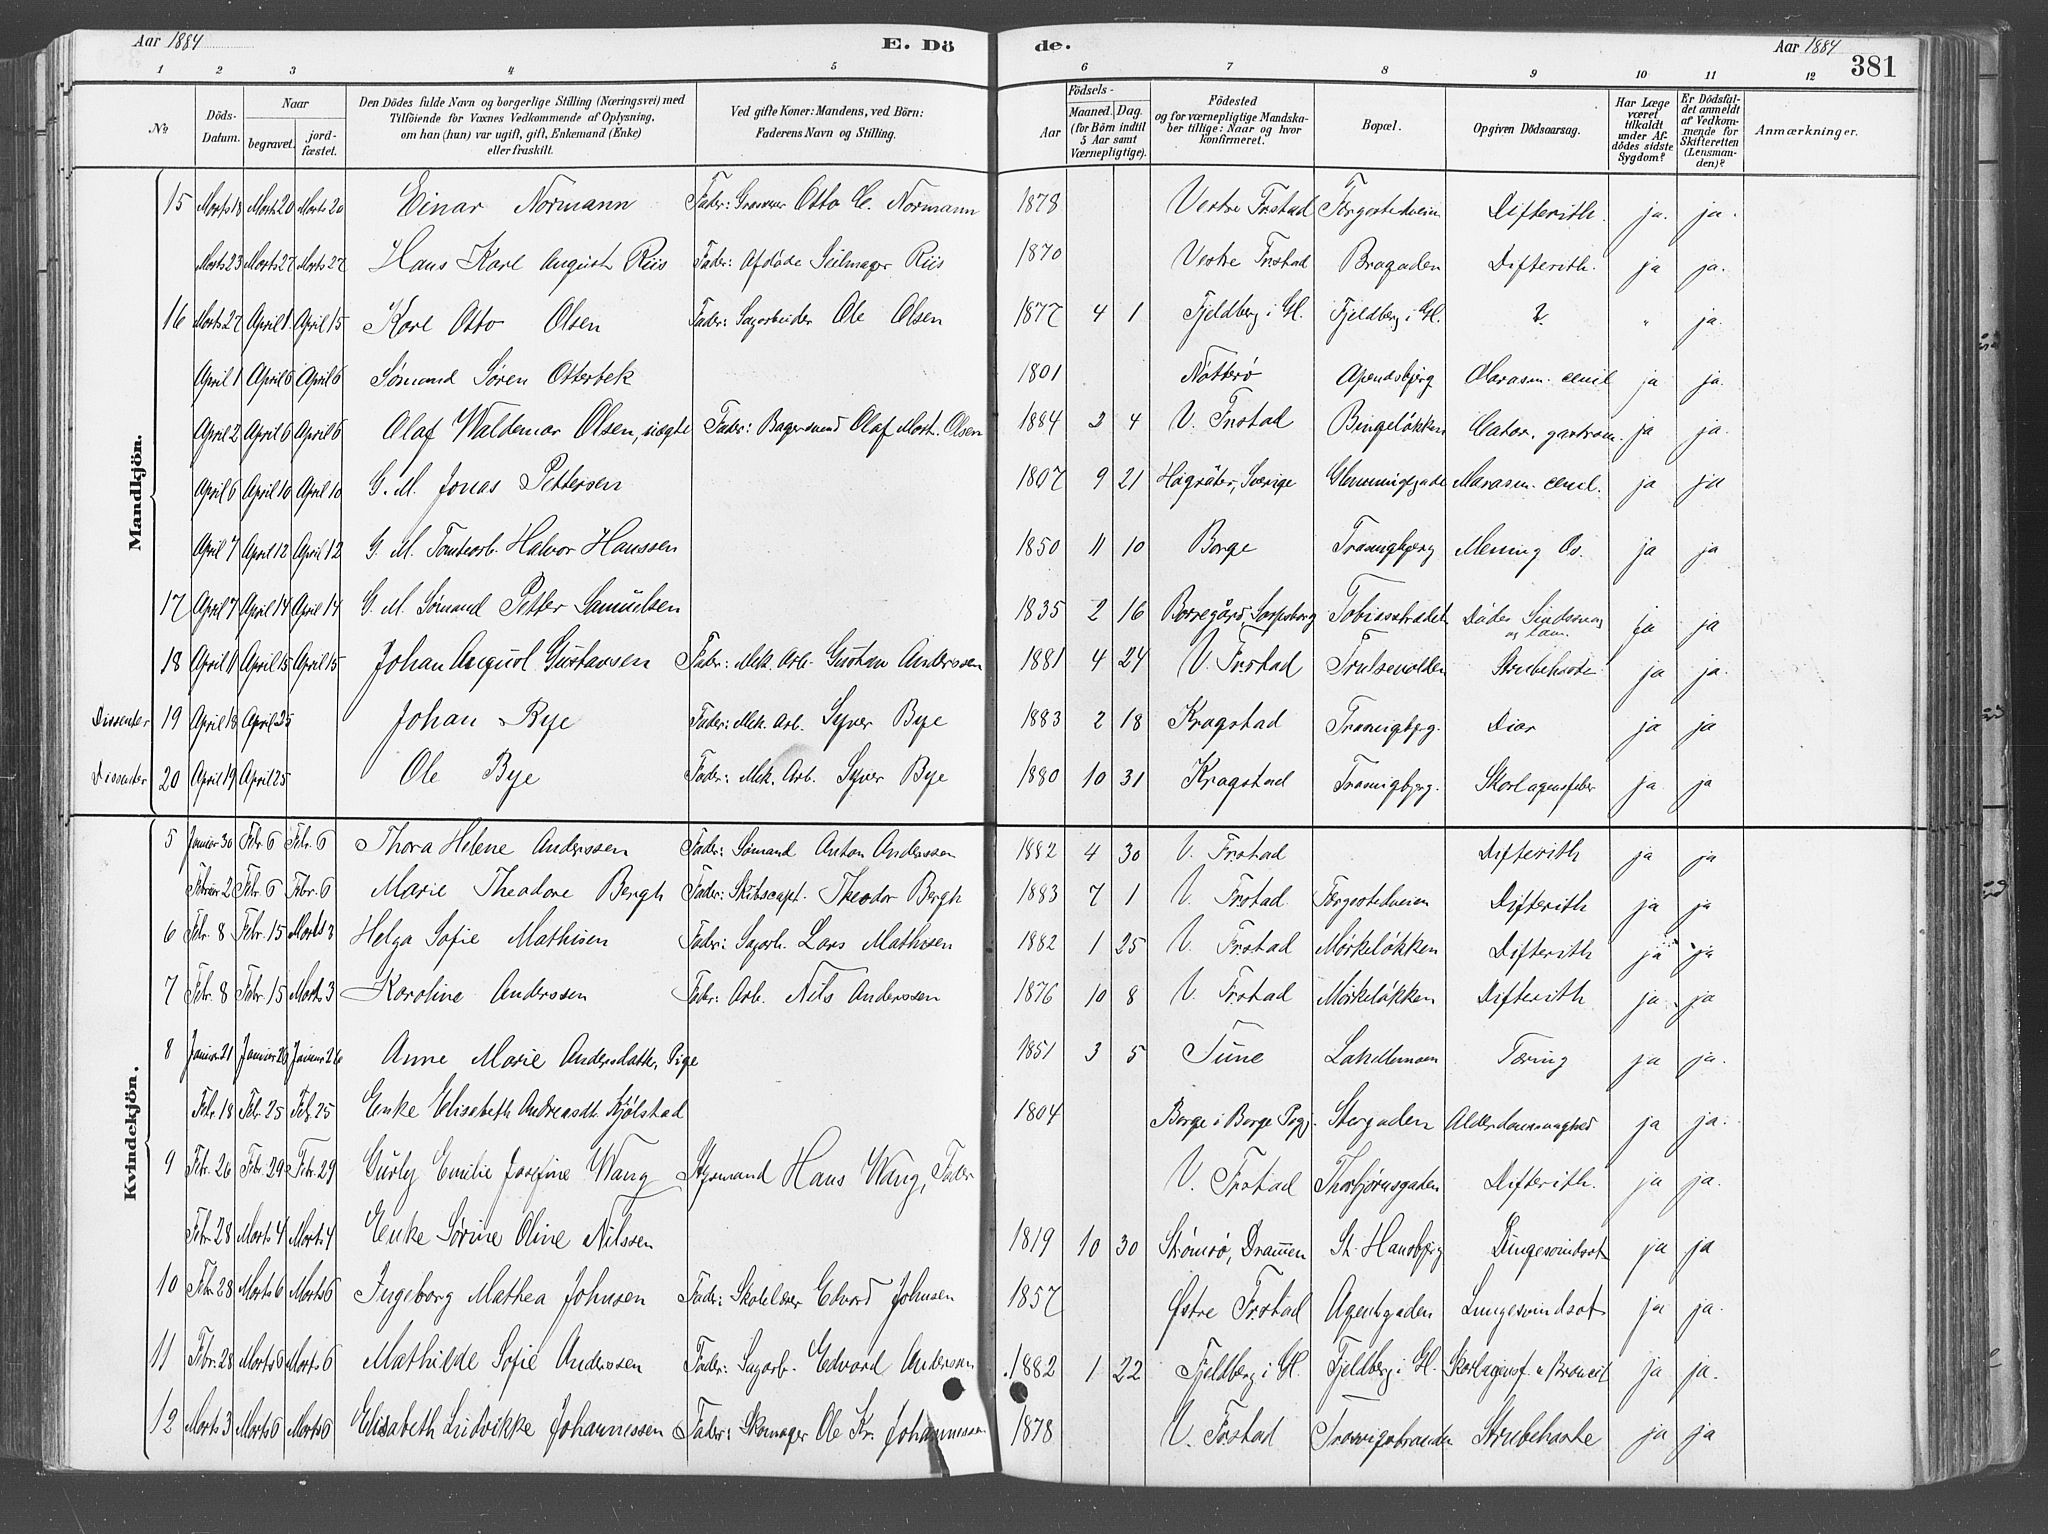 Aar 1884 E. Dö de. Aar 1884 381
1 2 3 4 5 6 7 8 9 10 11 12
№ Döds-Datum. Naar begravet. jord-fæstet. Den Dödes fulde Navn og borgerlige Stilling (Næringsvei) med Tilföiende for Voxnes Vedkommende af Oplysning, om han (hun) var ugift, gift, Enkemand (Enke) eller fraskilt. Ved gifte Koner: Mandens, ved Börn: Faderens Navn og Stilling. Födsels- Aar Maaned. Dag. (for Börn indtil 5 Aar samt Værnepligtige). Födested og for værnepligtige Mandskaber tillige: Naar og hvor konfirmeret. Bopæl. Opgiven Dödsaarsag. Har Læge været tilkaldt under Afdödes sidste Sygdom? Er Dödsfaldet anmeldt af Vedkommende for Skifteretten (Lensmanden)? Anmærkninger.
Mandkjön.
15 Marts 18 Marts 20 Marts 20 Einar Normann Fader: Otto C. Normann 1878 Vestre Frstad Færgestedveien Difterith. ja. ja.
Marts 23 Marts 27 Marts 27 Hans Karl August Riis Fader: Afdöde Seilmager Riis 1870 Vestre Frstad Bragaden Difterith. ja ja.
16 Marts 27 April 1 April 15 Karl Otto Olsen Fader: Sagarbeider Ole Olsen 1877 4 1 Fjeldberg i Gl. Fjeldberg i Gl. ? " ja
April 1 April 6 April 6 Sømand Søren Otterbek 1801 Nøtterø Apendsbjerg Marasm. cenil ja ja.
April 2 April 6 April 6 Olaf Waldemar Olsen, uægte Fader: Bagersvend Olaf Mart. Olsen 1884 2 4 V. Frstad Bingeløkken Catar. gastrom. ja ja.
April 6 April 10 April 10 G. M. Jonas Pettersen 1807 9 21 Høgsäter, Sverige Glemmingegade Marasm. cenil. ja ja
April 7 April 12 April 12 G. M. Tomtearb. Halvor Hanssen 1850 11 10 Borge Trosvigbjerg Mening Os. ja ja
17 April 7 April 14 April 14 G. M. Sømand Petter Samuelsen 1835 2 16 Borregård, Sarpsborg Tobiasstrædet Dødes Sindssvag og lam. ja ja
18 April 11 April 15 April 15 Johan August Gustavsen Fader: Mek. Arb. Gustav Anderssen 1881 4 24 V. Frstad Trulsevolden Strubehoste ja ja.
Dissenter 19 April 18 April 25 Johan Bye Fader: Mek. Arb. Syver Bye 1883 2 18 Kragstad Trosvigbjerg. Diar ja ja
Dissenter 20 April 19 April 25 Ole Bye Fader: Mek. Arb. Syver Bye 1880 10 31 Kragstad Trosvigbjerg. Skarlagensfeber ja ja
Kvindekjön.
5 Januar 30 Febr. 6 Febr. 6 Thora Helene Anderssen Fader: Sømand Anton Anderssen 1882 4 30 V. Frstad Difterith ja ja
Februar 2 Febr. 6 Febr. 6 Marie Theodore Bergh Fader: Skibscapt. Theodor Bergh 1883 7 1 V. Frstad Færgestedveien Difterith ja ja
6 Febr. 8 Febr. 15 Marts 3 Helga Sofie Mathisen Fader: Sagarb. Lars Mathisen 1882 1 25 V. Frstad Mørkeløkken Difterith ja ja
7 Febr. 8 Febr. 15 Marts 3 Karoline Anderssen Fader: Arb. Nils Anderssen 1876 10 8 V. Frstad Mørkeløkken Difterith ja. ja
8 Januar 21 Januar 26 Januar 26 Anne Marie Andersdatter, Pige 1851 3 5 Tune Lahellemoen Tæring ja ja.
Febr. 18 Febr. 25 Feb. 25 Enke Elisabeth Andreasdt. Kjølstad 1804 Borge i Borge Pgj. Storgaden Alderdomssvaghed ja ja.
9 Febr. 26 Febr. 29 Febr. 29 Gurly Emilie Josefine Wang Styrmand Hans Wang, Fader V. Frstad Thorbjørnsgaden Difterith. ja ja.
Febr. 28 Marts 4 Marts 4 Enke Sørine Oline Nilssen 1819 10 30 Strømsø, Drammen St. Hansbjerg Lungesvindsot ja ja
10 Febr. 28 Marts 6 Marts 6 Ingeborg Mathea Johnsen Fader: Skolelærer Edvard Johnsen 1857 Østre Frstad Agentgaden Lungesvindsot ja ja.
11 Febr. 28 Marts 6 Marts 6 Mathilde Sofie Anderssen Fader: Sagarb. Edvard Anderssen 1882 1 22 Fjeldberg i Gl. Fjeldberg i Gl. Skarlagensf. & Broncit ja ja.
12 Marts 3 Marts 6 Marts 6 Elisabeth Ludvikke Johannessen Fader: Skomager Ole Kr. Johannessen 1878 V. Frstad Trosvigstranden Strubehoste ja ja